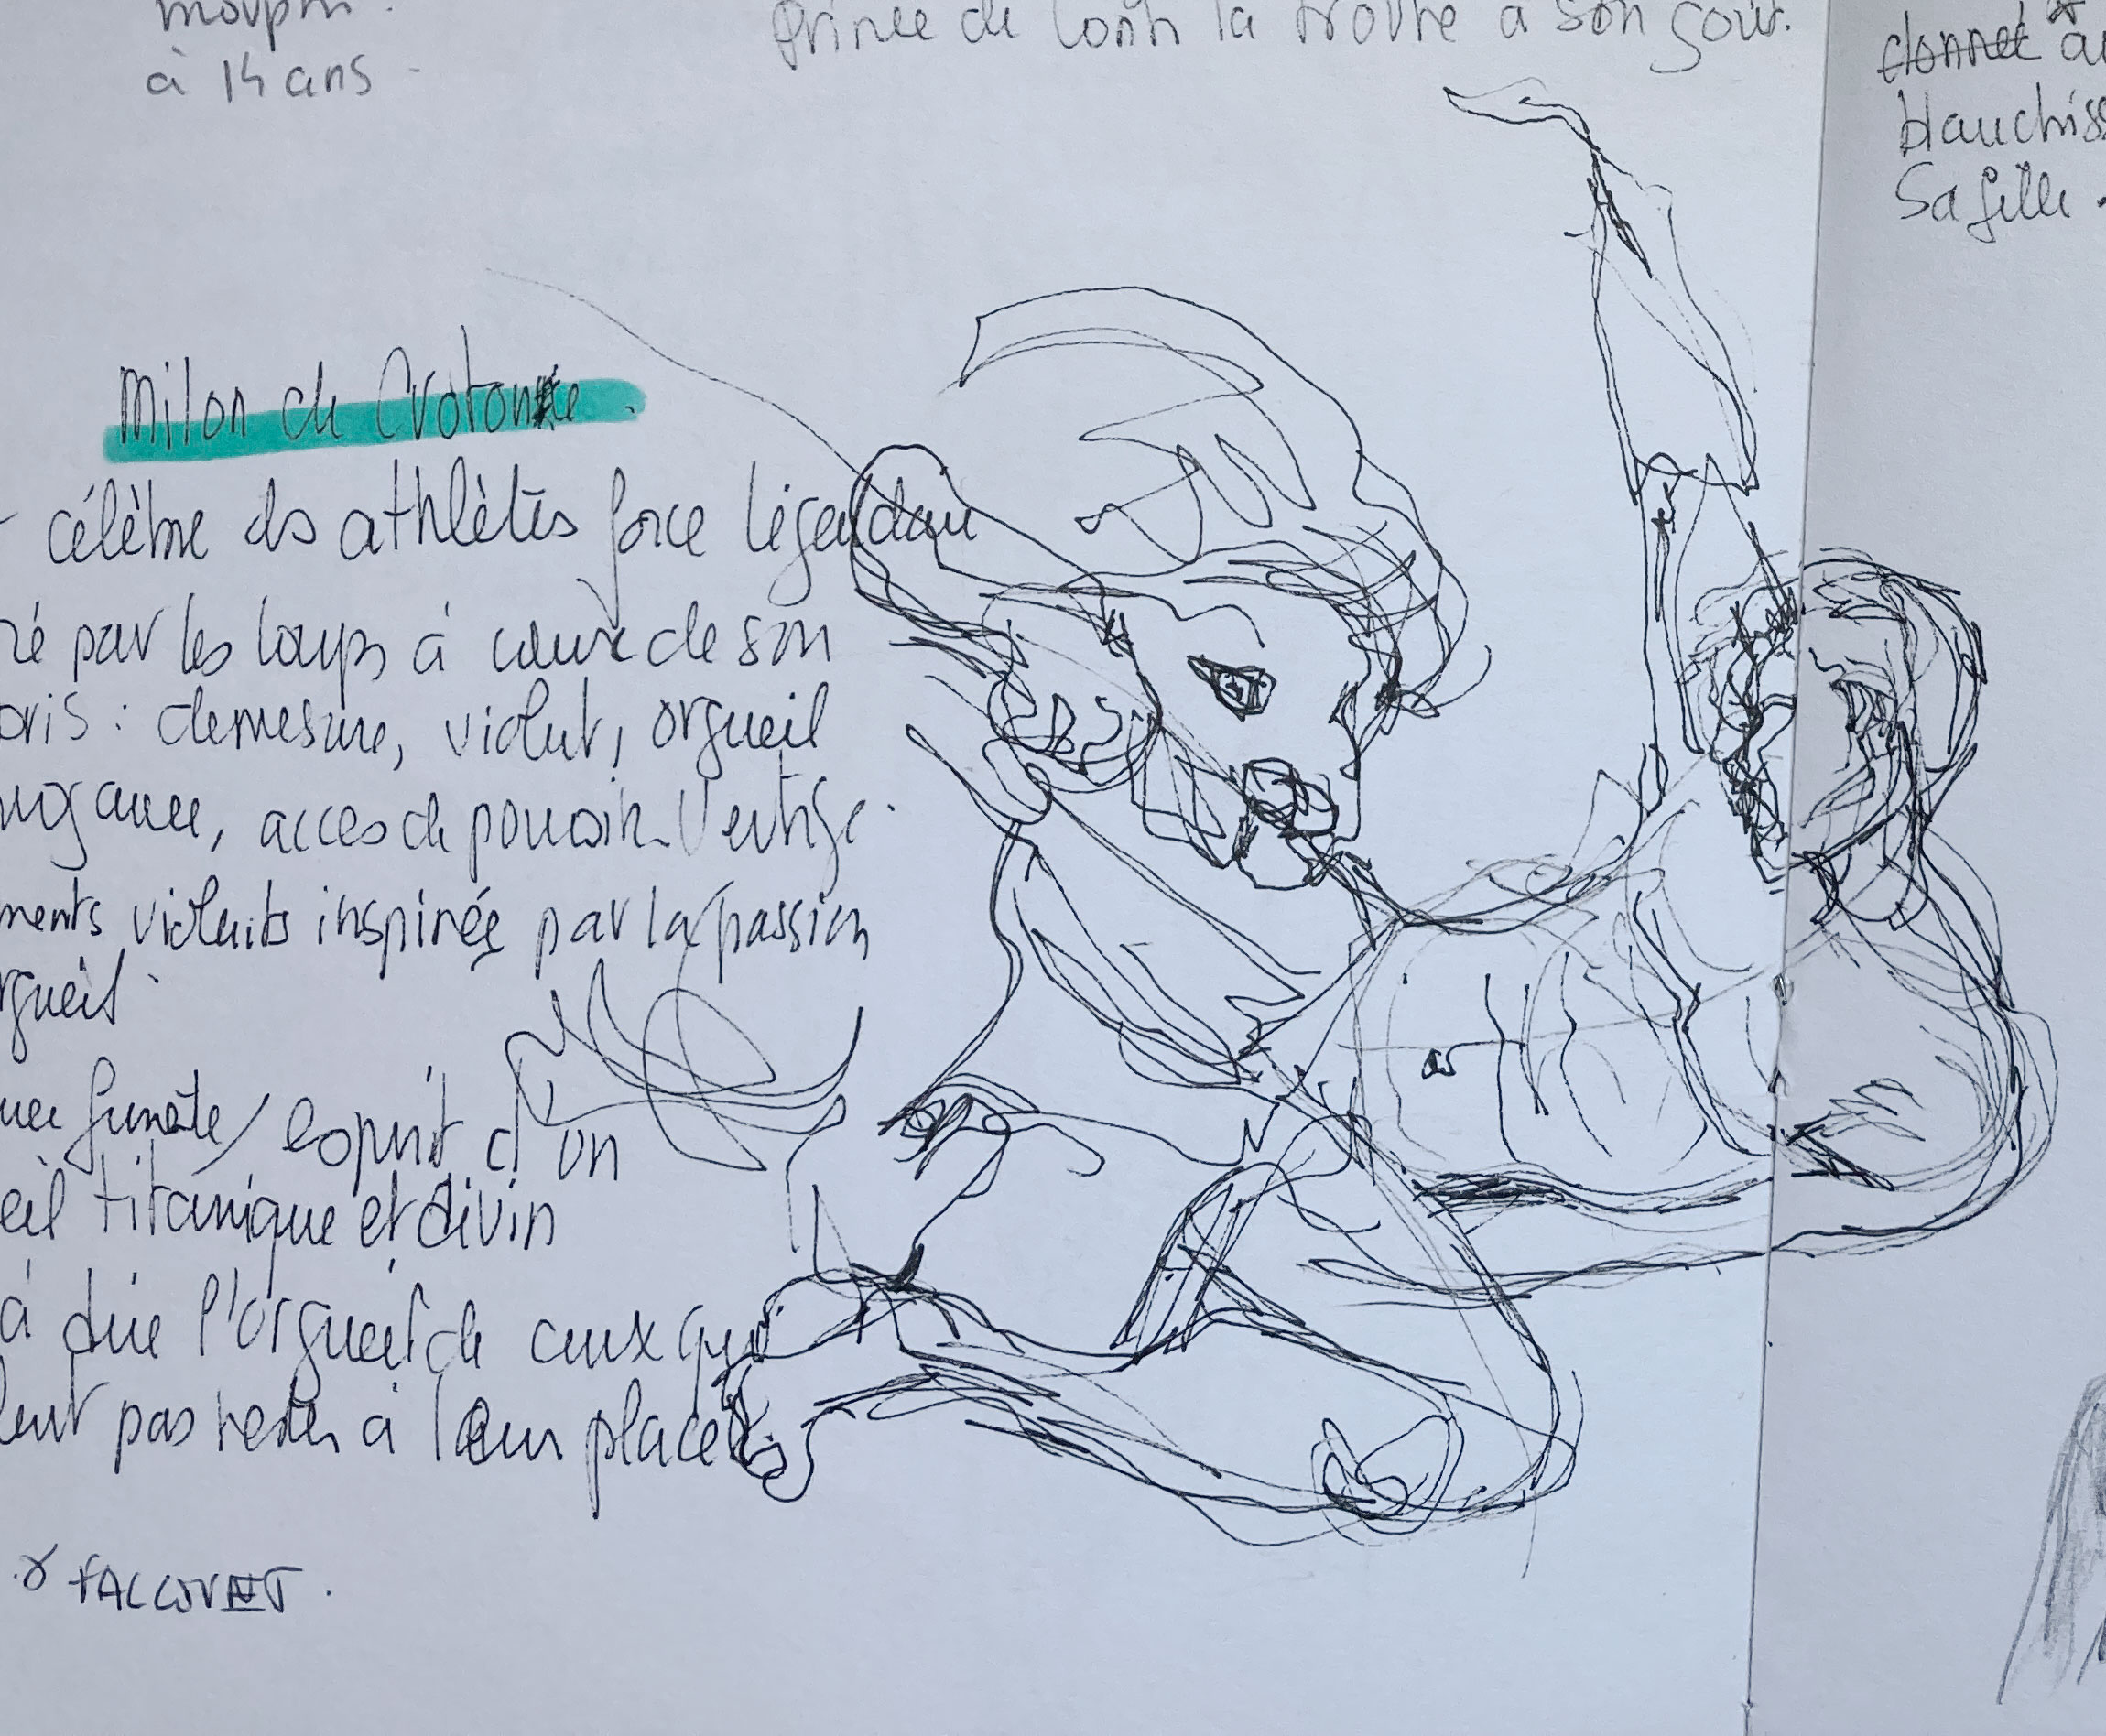 à 14 ans.
Prince de Conti la trouve à son goût.
donnée
Sa fille.
Milon de Crotone.
célèbre des athlètes force légendaire
ré par les loups à cause de son
pris : demesure, violent, orgueil
rogance, acces de pouvoir. Vertige.
ments violents inspirée par la passion
rgueil.
funeste / esprit d'un
eil titanique et divin
à dire l'orgueil de ceux qui
lent pas rester à leur place.
FALCONET.